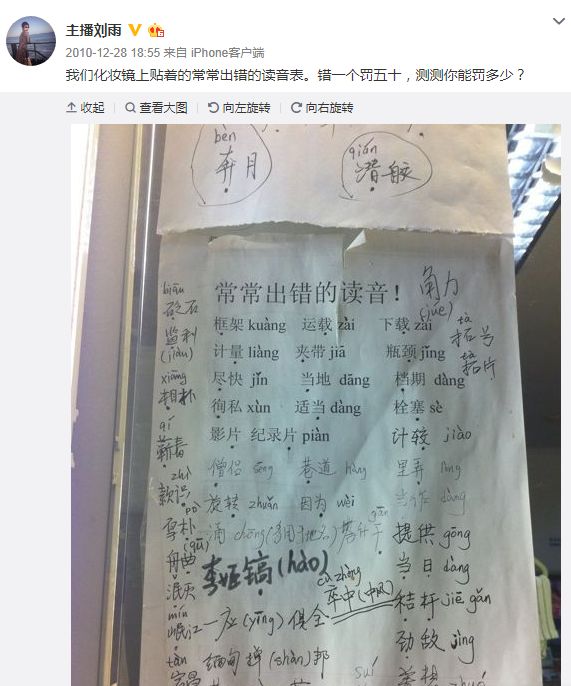 主播刘雨
2010-12-28 18:55 来自 iPhone客户端
我们化妆镜上贴着的常常出错的读音表。错一个罚五十，测测你能罚多少？
收起 查看大图 向左旋转 向右旋转
bèn
奔月
qián
潜艇
常常出错的读音！
角力
(jué)
框架 kuàng 运载 zài 下载 zài
计量 liàng 夹带 jiā 瓶颈 jǐng
尽快 jǐn 当地 dāng 档期 dàng
徇私 xùn 适当 dàng 栓塞 sè
影片 纪录片 piàn 计较 jiào
僧侣 sēng 巷道 hàng 里弄 lòng
旋转 zhuǎn 因为 wèi 当作 dàng
涌 chōng (多用于地名) 若干 gān 提供 gōng
李亚镐 (hào) 当日 dàng
cù zhòng
卒中 (中风) 秸秆 jiē gǎn
一应 (yīng) 俱全 劲敌 jìng
缅甸掸 (shàn) 邦
suí
biān
砭石
监利
(jiàn)
xiāng
相扑
qí
蕲春
zhì
款识
pò
(qū)
舟曲
泯灭
mín
岷江
tà
拓号
tà
拓片